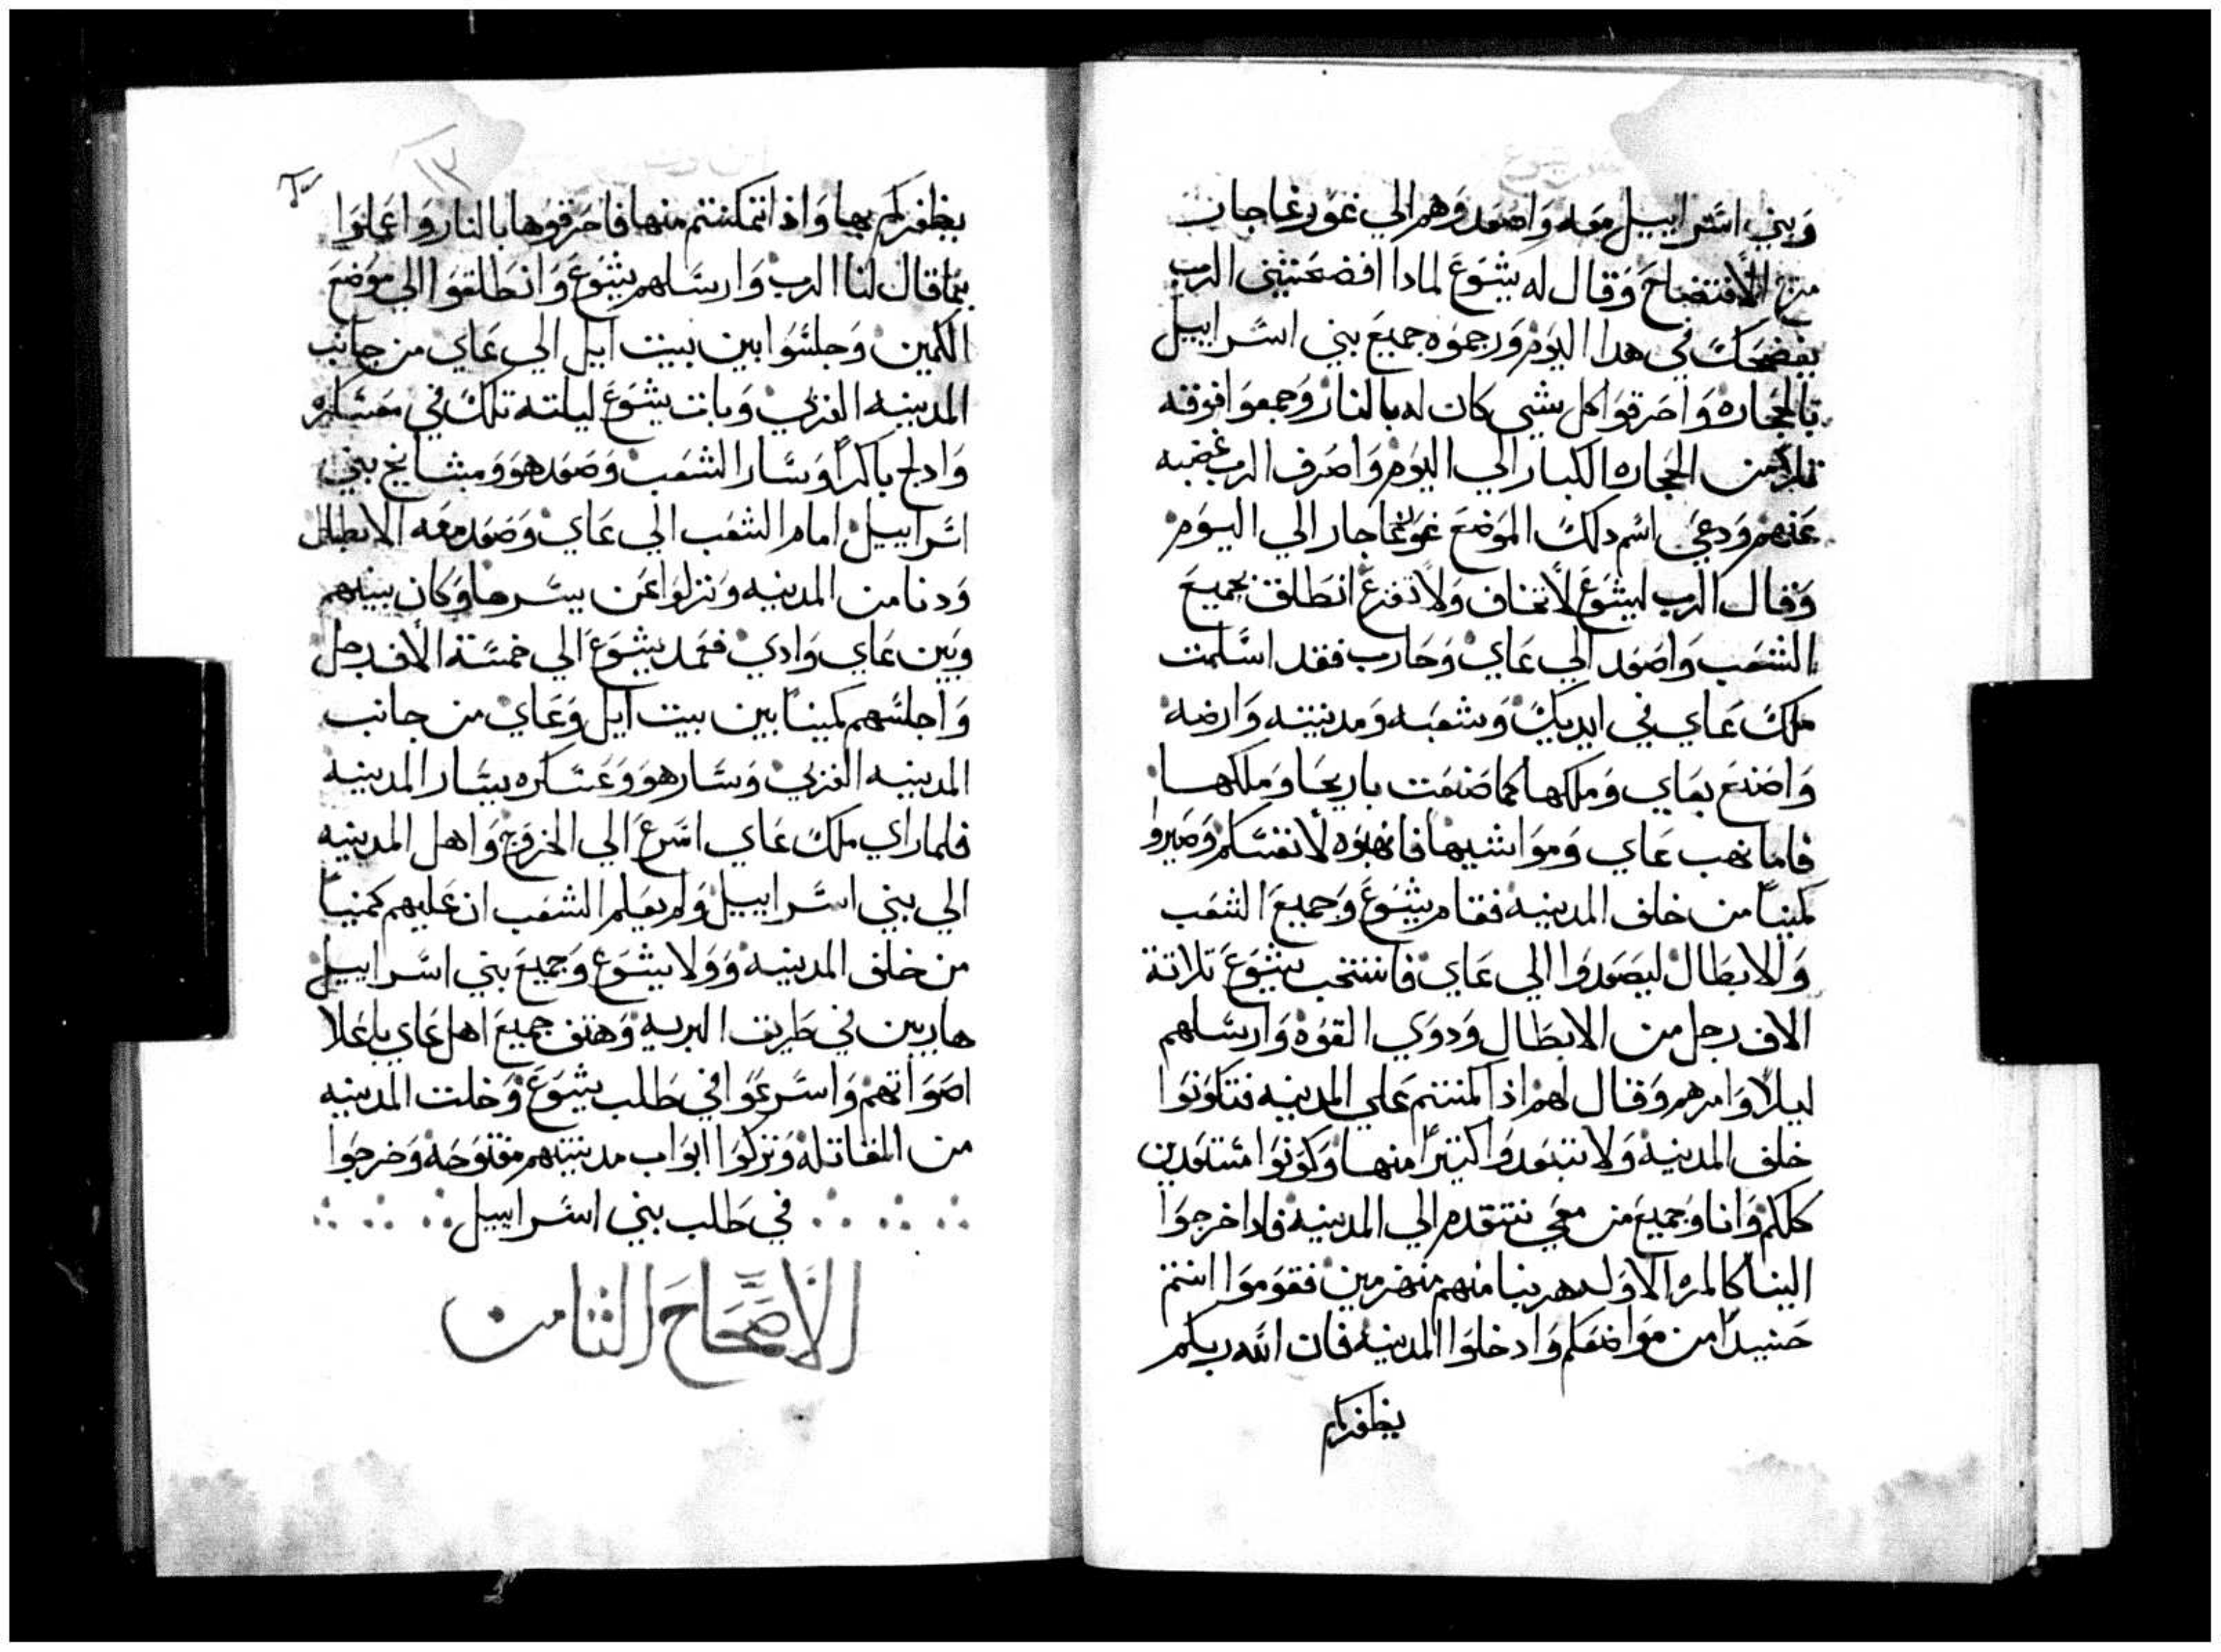 وبني اسرابيل معه واصعدوهم الي غور غاجار
من الافتضاح وقال له يشوع لمادا افضحتني الرب
يفضحك في هدا اليوم ورجموه جميع بني اسرابيل
بالحجاره واحرقوا كل شي كان له بالنار وجمعوا فوقه
تلا من الحجاره الكبار الي اليوم واصرف الرب غضبه
عنهم ودعي اسم دلك الموضع غور غاجار الي اليوم
وقال الرب ليشوع لا تخاف ولا تفزع انطلق بجميع
الشعب واصعد الي عاي وحارب فقد اسلمت
ملك عاي في ايديك وشعبه ومدينته وارضه
واصنع بعاي وملكها كما صنعت باريحا وملكها
فاما نهب عاي ومواشيها فانهبوه لانفسكم وصيروا
كمينا من خلف المدينه فقام يشوع وجميع الشعب
والابطال ليصعدوا الي عاي فانتخب يشوع تلاتة
الاف رجل من الابطال ودوي القوه وارسلهم
ليلا وامرهم وقال لهم اذ اكمنتم علي المدينه فتكونوا
خلف المدينه ولا تبتعدوا كتيرا منها وكونوا مستعدين
كلكم وانا وجميع من معي نتقدم الي المدينه فادا خرجوا
الينا كالمره الاوله هربنا منهم منهزمين فقوموا انتم
حنيدا من مواضعكم وادخلوا المدينه فان الله ربكم
يظفركم
١٣
يظفركم بها واذا تمكنتم منها فاحرقوها بالنار واعملوا
بما قال لنا الرب وارسلهم يشوع وانطلقوا الي موضع
الكمين وجلسوا بين بيت ايل الي عاي من جانب
المدينه الغربي وبات يشوع ليلته تلك في معسكره
وادلج باكرا وسار الشعب وصعد هو ومشايخ بني
اسرابيل امام الشعب الي عاي وصعد معه الابطال
ودنا من المدينه ونزلوا عن يسرها وكان بينهم
وبين عاي وادي فعمد يشوع الي خمسة الاف رجل
واجلسهم كمينا بين بيت ايل وعاي من جانب
المدينه الغربي وسار هو وعسكره يسار المدينه
فلما راي ملك عاي اسرع الي الخروج واهل المدينه
الي بني اسرابيل ولم يعلم الشعب ان عليهم كمينا
من خلف المدينه وولا يشوع وجميع بني اسرابيل
هاربين في طريق البريه وهتف جميع اهل عاي باعلا
اصواتهم واسرعوا في طلب يشوع وخلت المدينه
من المقاتله وتركوا ابواب مدينتهم مفتوحه وخرجوا
في طلب بني اسرابيل
الاصحاح الثامن